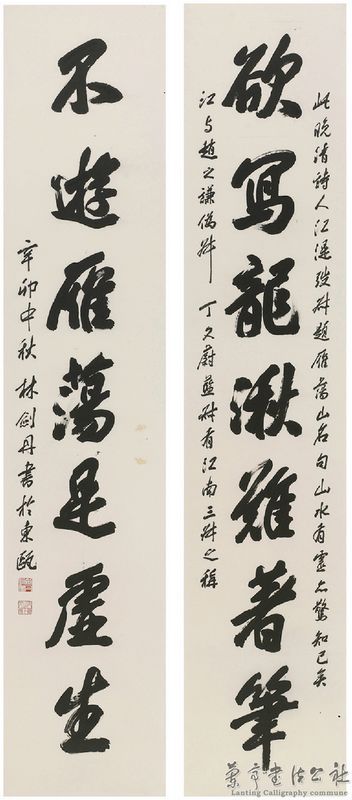 此晚清詩人江湜弢叔題雁蕩山名句山水有靈亦驚知己矣
欲寫龍湫難著筆
江与趙之謙撝叔丁文蔚藍叔有江南三叔之稱
不遊雁蕩是虛生
辛卯中秋林劍丹書於東甌
蘭亭書法公社
Lanting Calligraphy commune